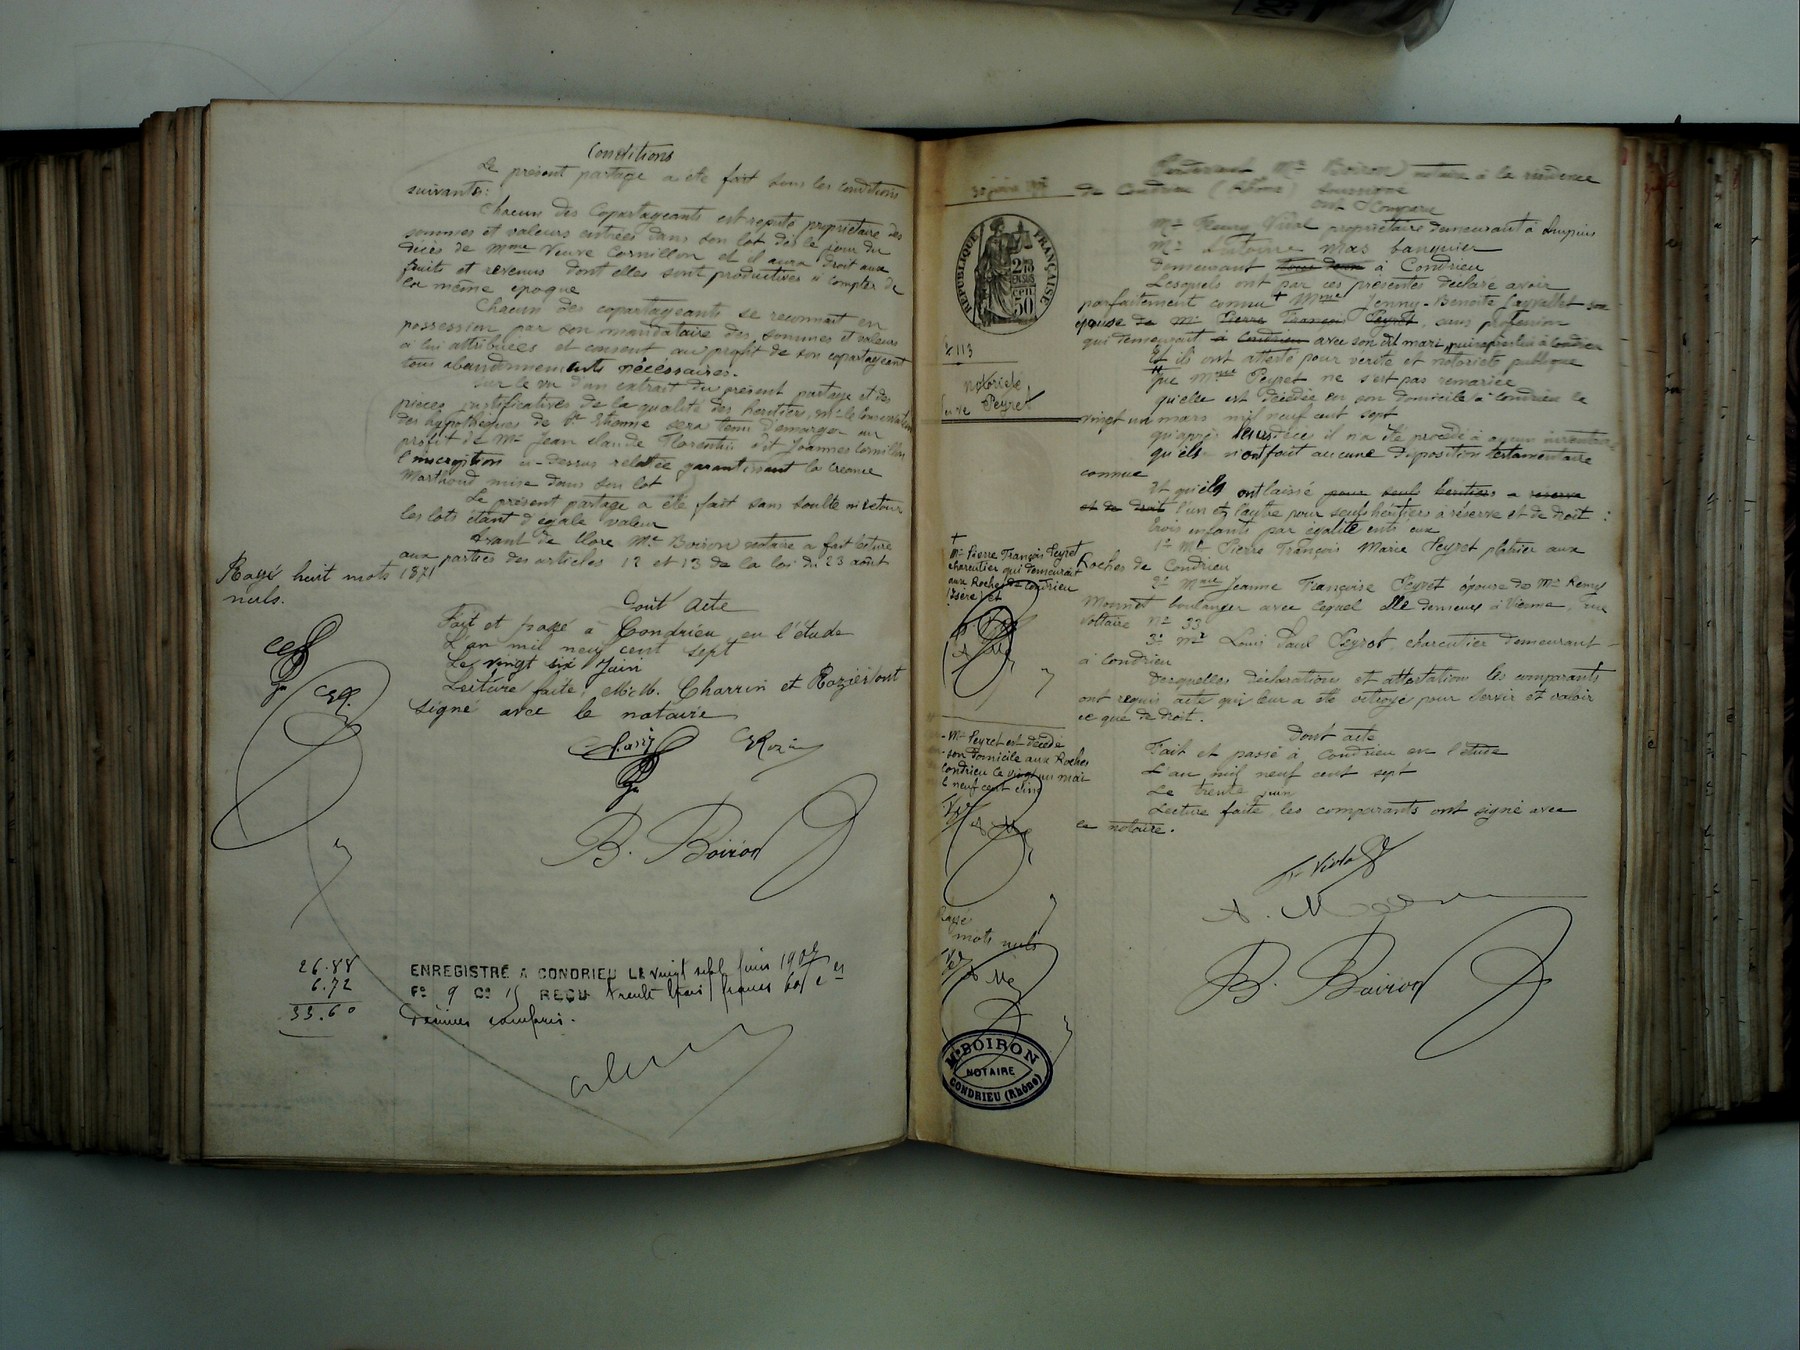 Conditions
Le présent partage a été fait sous les conditions
suivantes:
Chacun des Copartageants est réputé propriétaire des
sommes et valeurs entrées dans son lot dès le jour du
décès de Mme Veuve Cornillon et il aura droit aux
fruits et revenus dont elles sont productives à compter de
la même époque
Chacun des copartageants se reconnait en
possession par son mandataire des sommes et valeurs
à lui attribuées et consent au profit de son copartageant
tous abandonnements nécessaires.
Sur le vu d'un extrait du présent partage et des
pièces justificatives de la qualité des héritiers, Mr le Conservateur
des hypothèques de St Etienne sera tenu d'émarger au
profit de Mr Jean Claude Florentin dit Joannes Cornillon
l'inscription ci-dessus relatée garantissant la créance
Marthoud mise dans son lot
Le présent partage a été fait sans soulte ni retour
les lots étant d'égale valeur
Avant de clore Me Boiron notaire a fait lecture
aux parties des articles 12 et 13 de la loi du 23 août
1871
Rayé huit mots
nuls.
Dont Acte
Fait et passé à Condrieu en l'étude
L'an mil neuf cent sept
Le vingt six Juin
Lecture faite, MM. Charrin et Rozier ont
signé avec le notaire
B. Boiron
26.88
6.72
33.60
ENREGISTRÉ A CONDRIEU LE vingt sept Juin 1907
F° 9 C° 15 REÇU trente trois francs 60 c es
Décimes compris.
30 juin 1907
RÉPUBLIQUE FRANÇAISE
50
113
Notoriété
Peyret
Pardevant Me Boiron notaire à la résidence
de Condrieu (Rhône) soussigné
ont Comparu
Mr Fleury Vidal propriétaire demeurant à Ampuis
Mr Antoine Mas banquier
demeurant tous deux à Condrieu
Lesquels ont par ces présentes déclaré avoir
parfaitement connu + Mme Jenny-Benoite son
épouse de Mr Pierre François Peyret, sans profession
qui demeurait à Condrieu avec son dit mari, puis après lui à Condrieu
Et ils ont attesté pour vérité et notoriété publique
Que Mme Peyret ne s'est pas remariée
qu'elle est décédée en son domicile à Condrieu le
vingt un mars mil neuf cent sept
qu'après leurs décès il n'a été procédé à aucun inventaire
qu'ils n'ont fait aucune disposition testamentaire
connue
Et qu'ils ont laissé pour seuls héritiers à réserve
et de droit l'un et l'autre pour seuls héritiers à réserve et de droit :
trois enfants par égalité entr'eux
1° Mr Pierre François Marie Peyret plâtrier aux
Roches de Condrieu
2° Mme Jeanne Françoise Peyret épouse de Mr Remy
Monnet boulanger avec lequel elle demeure à Vienne, rue
Voltaire N° 33
3° Mr Louis Paul Peyret, charcutier demeurant
à Condrieu
Desquelles déclarations et attestations les comparants
ont requis acte qui leur a été octroyé pour servir et valoir
ce que de droit.
Dont acte
Fait et passé à Condrieu en l'étude
L'an mil neuf cent sept
Le trente juin
Lecture faite les comparants ont signé avec
le notaire.
B. Boiron
+
Mr Pierre François Peyret
charcutier qui demeurait
aux Roches de Condrieu
(Isère) et
Mr Peyret est décédé
son domicile aux Roches
Condrieu le vingt un mai
neuf cent cinq
Rayé
mots nuls
Me BOIRON
NOTAIRE
CONDRIEU (Rhône)